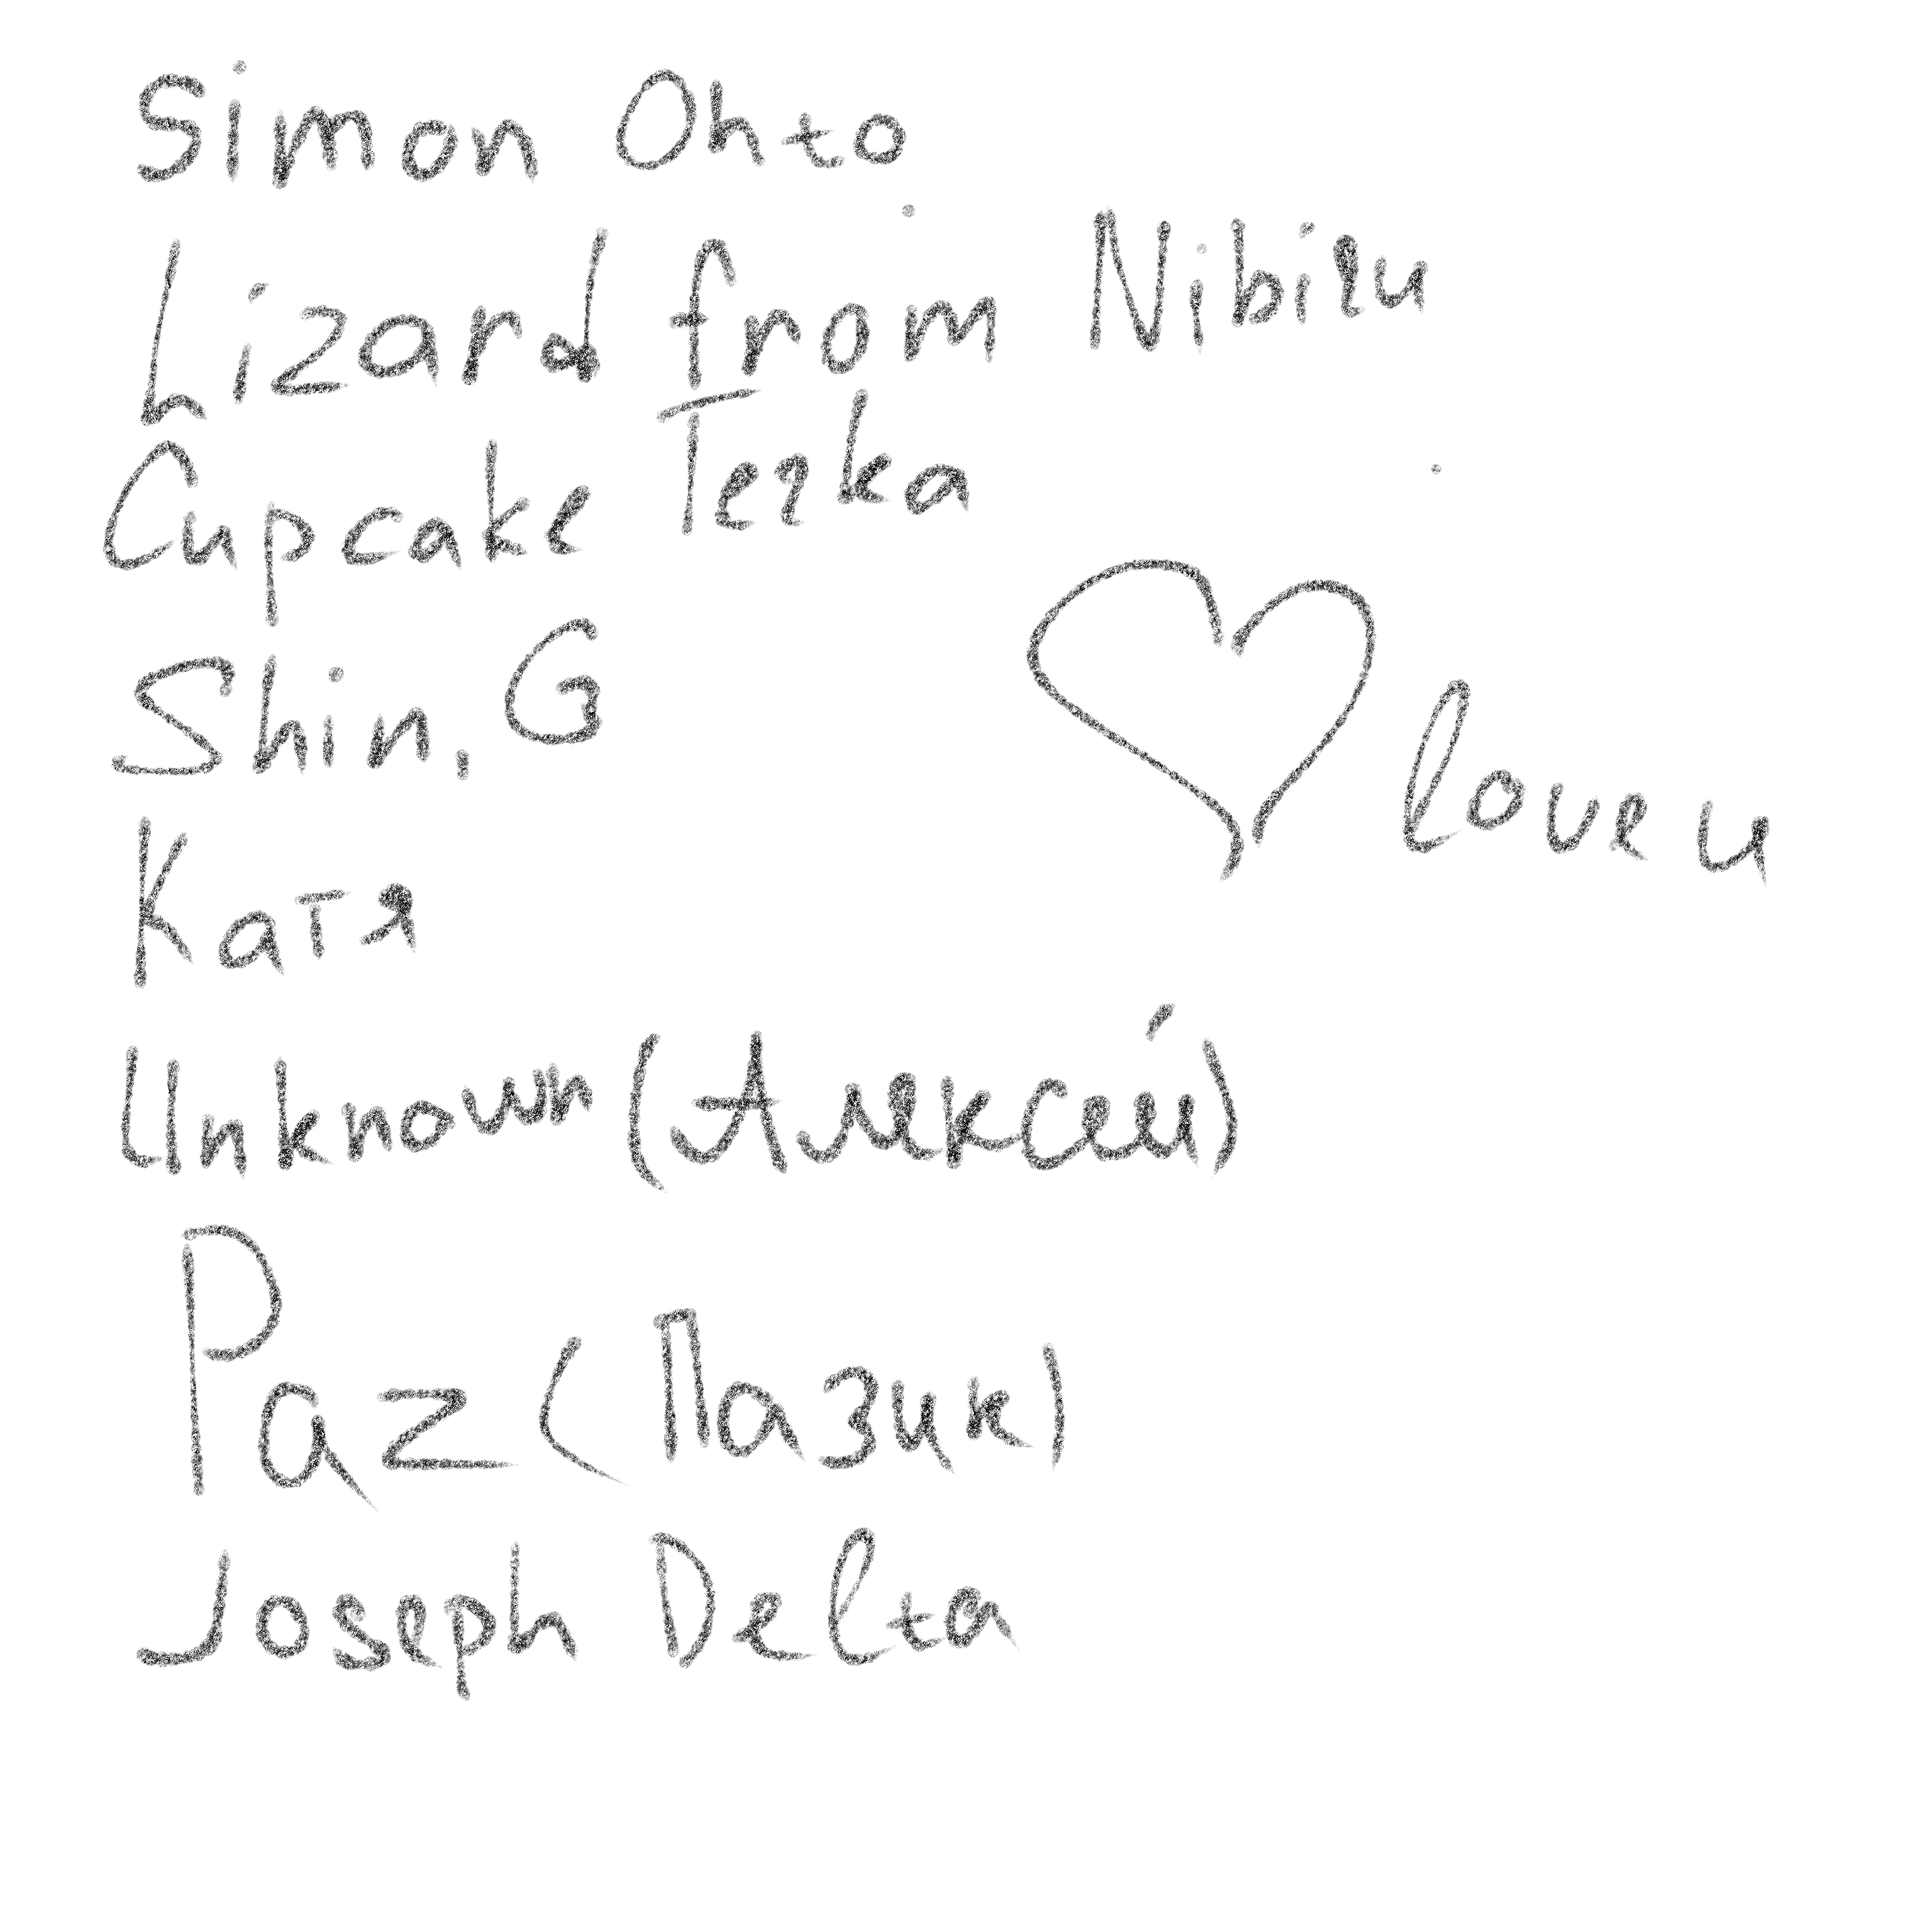 Simon Ohto
Lizard from Nibiru
Cupcake Terka
Shin, G
love u
Катя
Unknown (Алексей)
Paz (Пазик)
Joseph Delta